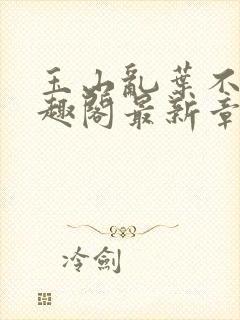 玉山亂葉不
趣閣最新章
冷劍